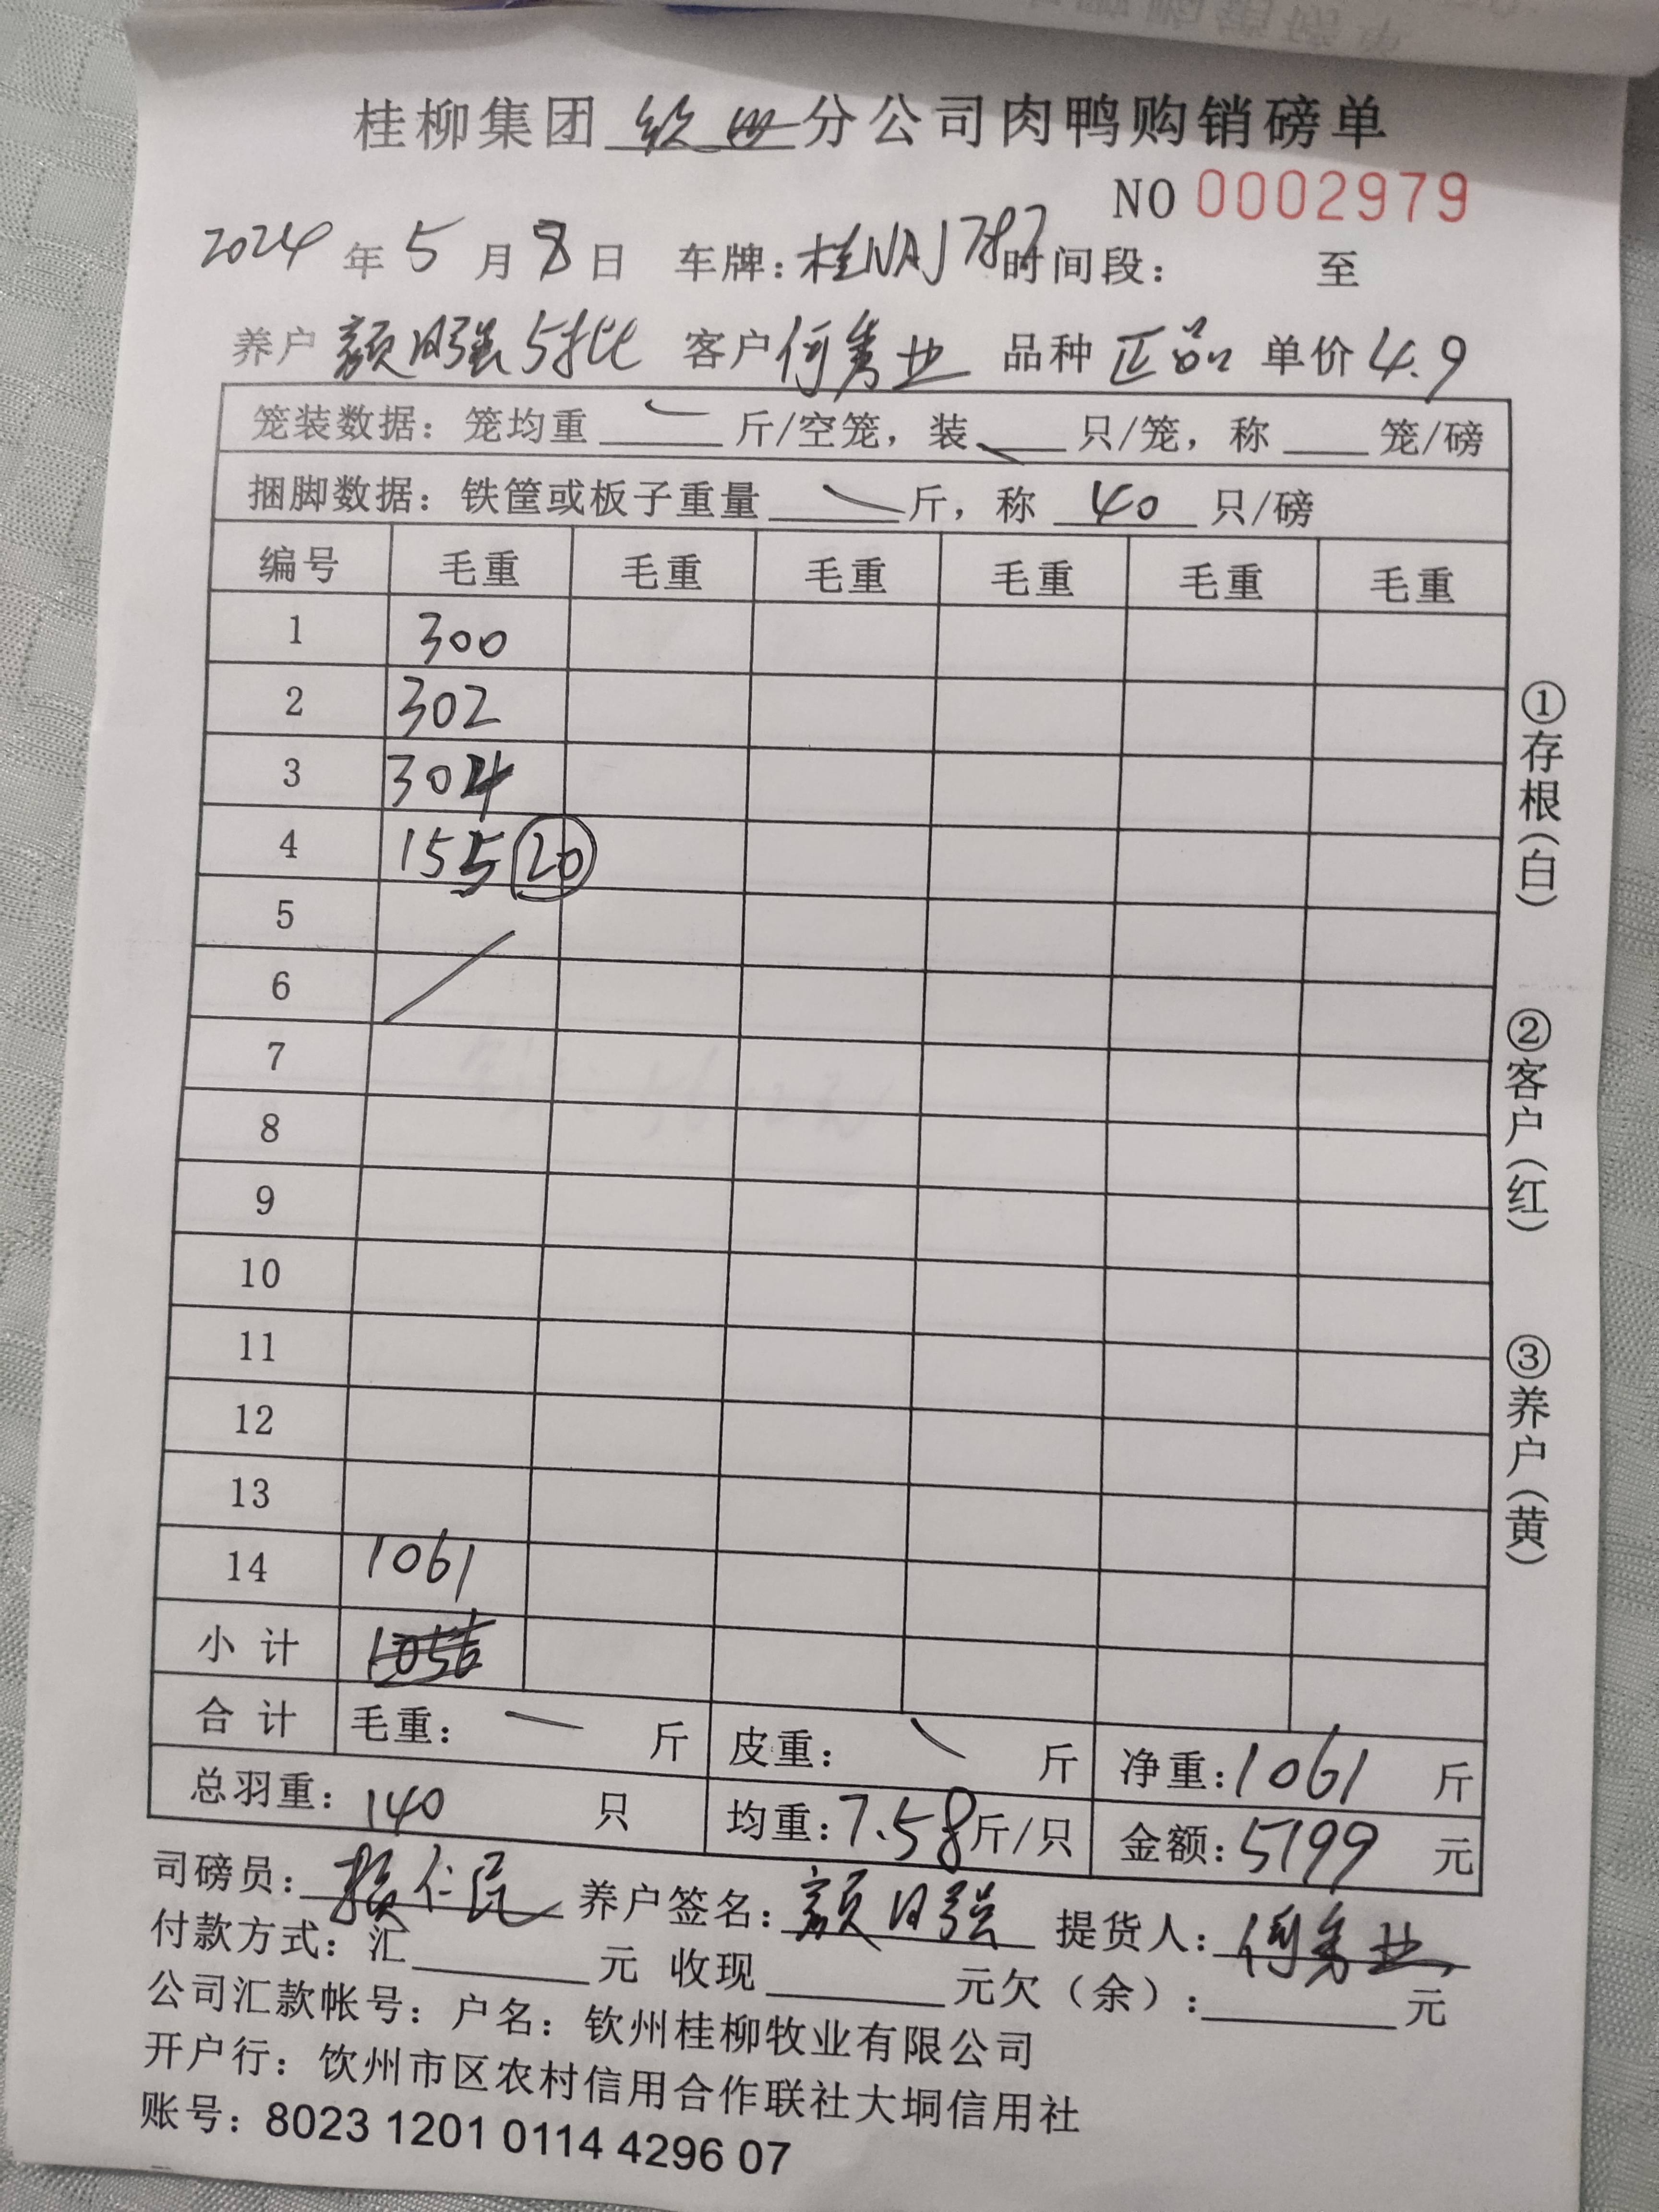 桂柳集团 钦州 分公司肉鸭购销磅单
NO 0002979
2024 年 5 月 8 日 车牌：桂NAJ787 时间段： 至
养户 颜日强5批 客户 何秀业 品种 正品 单价 4.9
笼装数据：笼均重 斤/空笼，装 只/笼，称 笼/磅
捆脚数据：铁筐或板子重量 斤，称 40 只/磅
编号 毛重 毛重 毛重 毛重 毛重 毛重
1 300
2 302
3 304
4 155 20
5
6
7
8
9
10
11
12
13
14 1061
小计 1056
合计 毛重： 斤 皮重： 斤 净重：1061 斤
总羽重：140 只 均重：7.58 斤/只 金额：5199 元
司磅员： 仁民 养户签名：颜日强 提货人：何秀业
付款方式：汇 元 收现 元欠（余）： 元
公司汇款帐号：户名：钦州桂柳牧业有限公司
开户行：饮州市区农村信用合作联社大垌信用社
账号：8023 1201 0114 4296 07
①存根（白）
②客户（红）
③养户（黄）